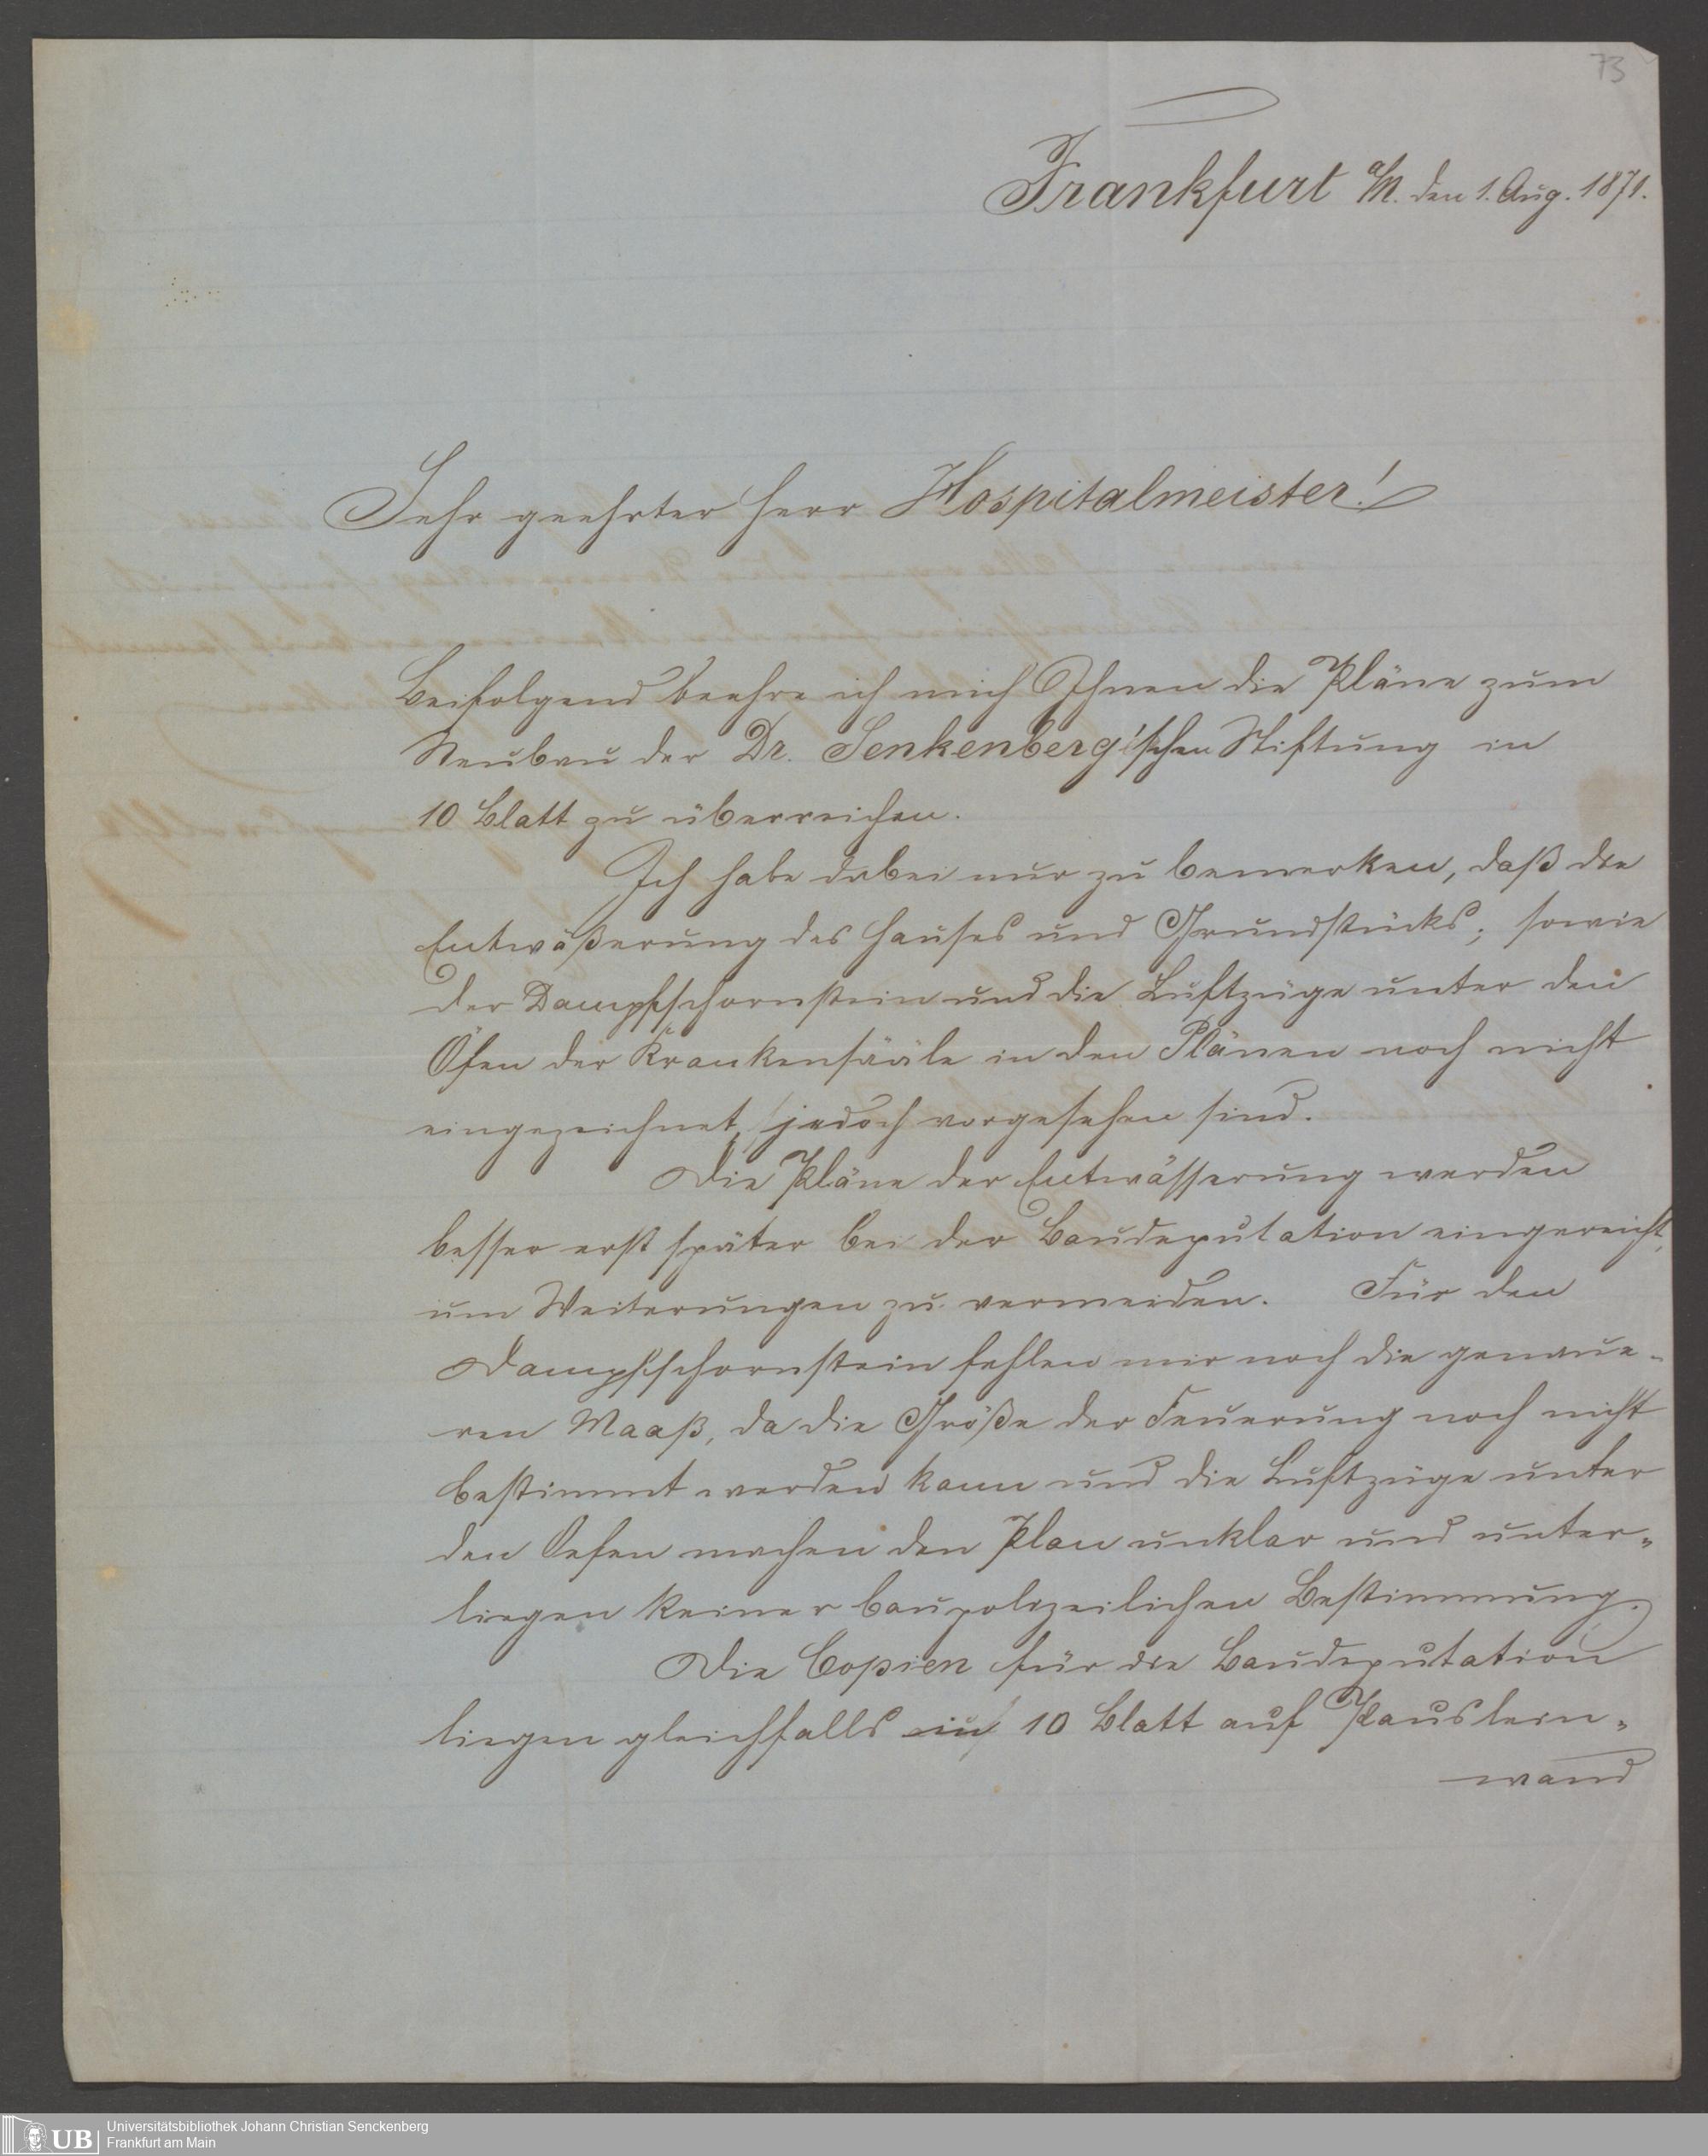 73
Frankfurt a/M. den 1. Aug. 1871.
Sehr geehrter Herr Hospitalmeister!
Beifolgend beehre ich mich Ihnen die Pläne zum
Neubau der Dr. Senkenberg'schen Stiftung in
10 Blatt zu überreichen.
Ich habe dabei nur zu bemerken, daß die
Entwäßerung des Hauses und Grundstücks; sowie
der Dampfschornstein und die Luftzüge unter den
Öfen der Krankensääle in den Plänen noch nicht
eingezeichnet, jedoch vorgesehen sind.
Die Pläne der Entwässerung werden
besser erst später bei der Baudeputation eingereicht,
um Weiterungen zu vermeiden. Für den
Dampfschornstein fehlen mir noch die genaue-
ren Maaß, da die Größe der Feuerung noch nicht
bestimmt werden kann und die Luftzüge unter
den Oefen machen den Plan unklar und unter-
liegen keiner baupolizeilichen Bestimmung.
Die Copien für die Baudeputation
liegen gleichfalls in 10 Blatt auf Pauslein-
wand
UB
Universitätsbibliothek Johann Christian Senckenberg
Frankfurt am Main